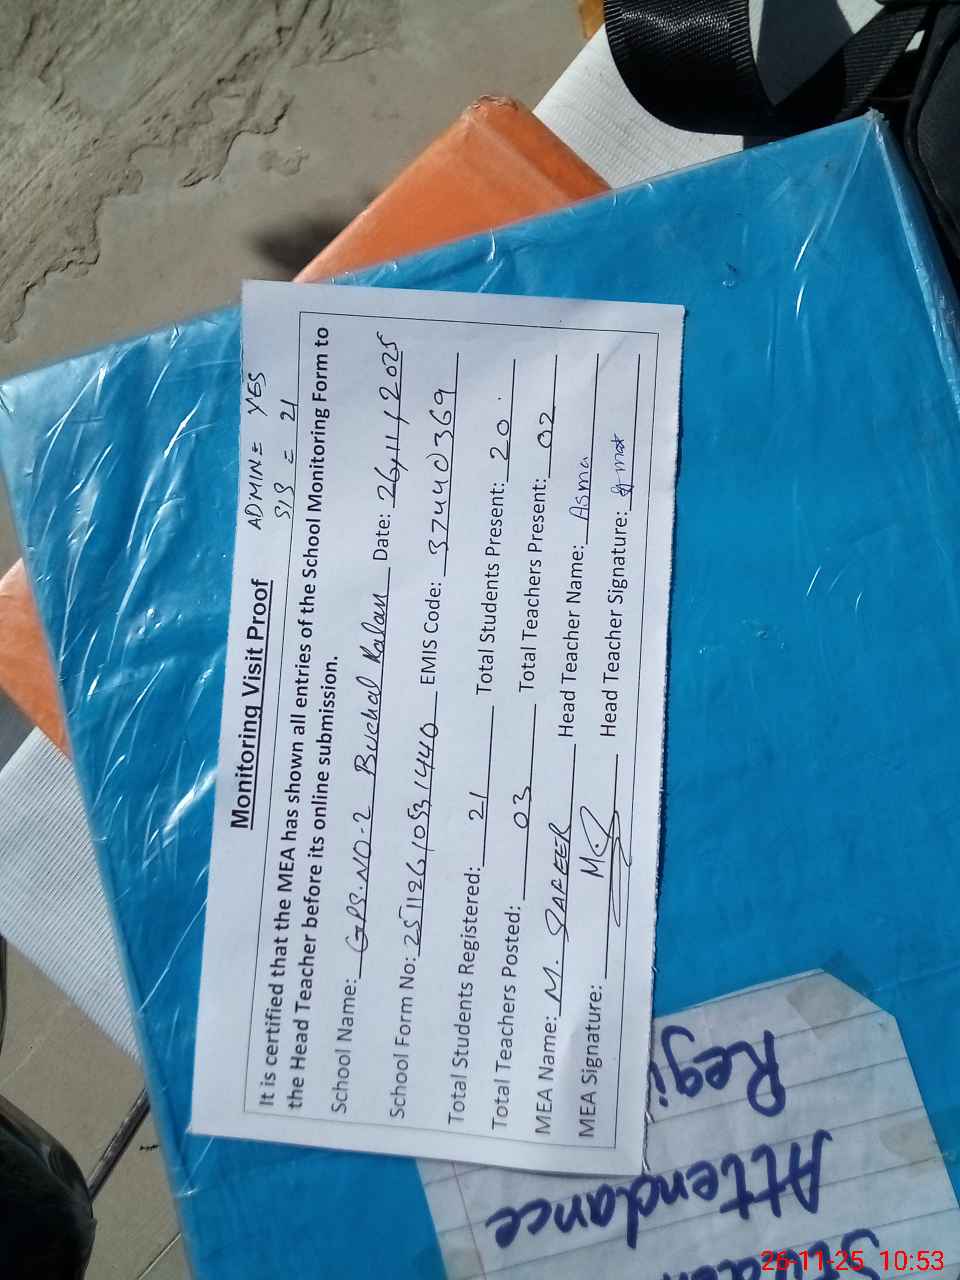 ADMIN = YES
SIS = 21
Monitoring Visit Proof
It is certified that the MEA has shown all entries of the School Monitoring Form to
the Head Teacher before its online submission.
School Name: GPS.NO-2 Buchal Kalan Date: 26/11/2025
School Form No: 251126105314440 EMIS Code: 37440369
Total Students Registered: 21 Total Students Present: 20.
Total Teachers Posted: 03 Total Teachers Present: 02
MEA Name: M. SAFEER Head Teacher Name: Asma
MEA Signature: Head Teacher Signature:
Attendance
Regi
26-11-25 10:53